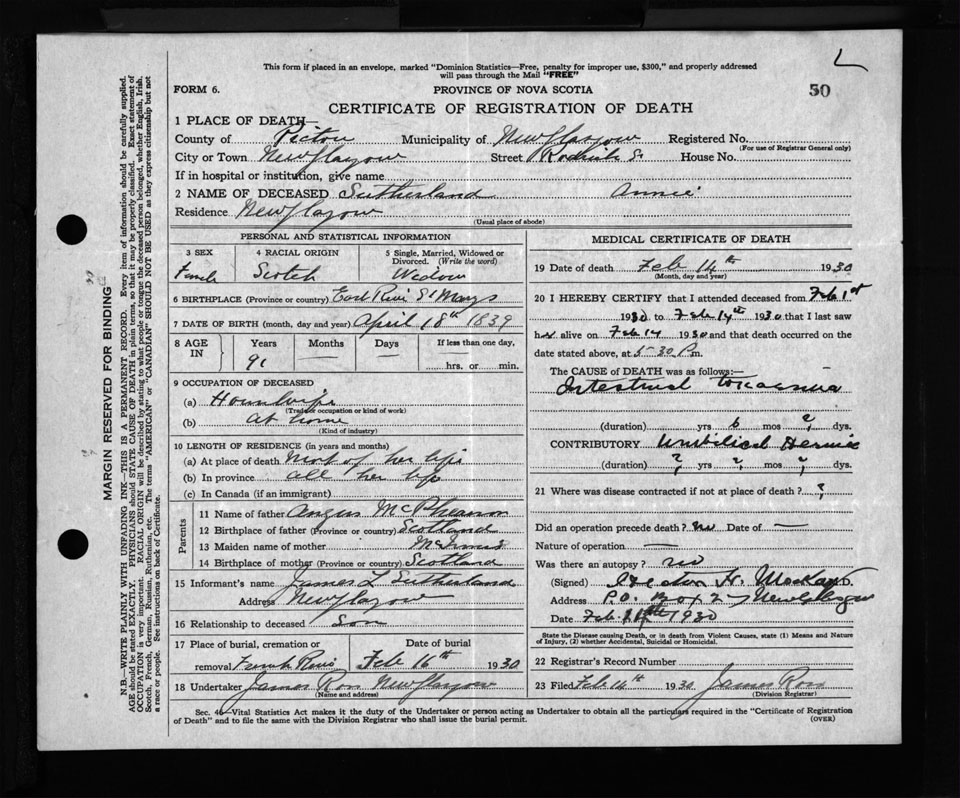 L
This form if placed in an envelope, marked "Dominion Statistics—Free, penalty for improper use, $300," and properly addressed
will pass through the Mail "FREE"
FORM 6.
PROVINCE OF NOVA SCOTIA
50
CERTIFICATE OF REGISTRATION OF DEATH
1 PLACE OF DEATH—
County of Pictou Municipality of New Glasgow Registered No.
(For use of Registrar General only)
City or Town New Glasgow Street House No.
If in hospital or institution, give name
2 NAME OF DECEASED Sutherland Annie
Residence New Glasgow
(Usual place of abode)
PERSONAL AND STATISTICAL INFORMATION
3 SEX 4 RACIAL ORIGIN 5 Single, Married, Widowed or Divorced. (Write the word)
Female Scotch Widow
6 BIRTHPLACE (Province or country) East River St Marys
7 DATE OF BIRTH (month, day and year) April 18th 1839
8 AGE IN Years Months Days If less than one day,
91 — — hrs. or min.
9 OCCUPATION OF DECEASED
(a) Housewife
(Trade or occupation or kind of work)
(b) At home
(Kind of industry)
10 LENGTH OF RESIDENCE (in years and months)
(a) At place of death Most of her life
(b) In province all her life
(c) In Canada (if an immigrant)
Parents
11 Name of father Angus
12 Birthplace of father (Province or country) Scotland
13 Maiden name of mother McInnis
14 Birthplace of mother (Province or country) Scotland
15 Informant's name James L Sutherland
Address New Glasgow
16 Relationship to deceased Son
17 Place of burial, cremation or Date of burial
removal Feb 16th 1930
18 Undertaker James Ross New Glasgow
(Name and address)
MEDICAL CERTIFICATE OF DEATH
19 Date of death Feb 14th 1930
(Month, day and year)
20 I HEREBY CERTIFY that I attended deceased from Feb 1st
1930 to Feb 14th 1930 that I last saw
her alive on Feb 14 1930 and that death occurred on the
date stated above, at 5-30 P.m.
The CAUSE of DEATH was as follows:—
Intestinal
(duration) yrs 6 mos ? dys.
CONTRIBUTORY Umbilical Hernia
(duration) ? yrs ? mos ? dys.
21 Where was disease contracted if not at place of death? ?
Did an operation precede death? no Date of —
Nature of operation —
Was there an autopsy? no
(Signed) H. M.D.
Address P.O. Box 27 New Glasgow
Date Feb. 14th 1930
State the Disease causing Death, or in death from Violent Causes, state (1) Means and Nature
of Injury, (2) whether Accidental, Suicidal or Homicidal.
22 Registrar's Record Number
23 Filed Feb 14th 1930 James Ross
(Division Registrar)
Sec. 4—Vital Statistics Act makes it the duty of the Undertaker or person acting as Undertaker to obtain all the particulars required in the "Certificate of Registration
of Death" and to file the same with the Division Registrar who shall issue the burial permit.
(OVER)
MARGIN RESERVED FOR BINDING
N.B.—WRITE PLAINLY WITH UNFADING INK—THIS IS A PERMANENT RECORD. Every item of information should be carefully supplied.
AGE should be stated EXACTLY. PHYSICIANS should STATE CAUSE OF DEATH in plain terms, so that it may be properly classified. Exact statement of
OCCUPATION is very important. RACIAL ORIGIN will be described by stating to what people or tongue the deceased person belonged, whether English, Irish,
Scotch, French, German, Russian, Ruthenian, etc. The terms "AMERICAN" or "CANADIAN" SHOULD NOT BE USED as they express citizenship but not
a race or people. See instructions on back of Certificate.